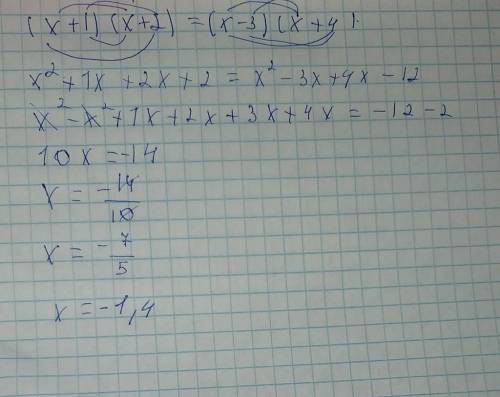 (x+1)(x+2) = (x-3)(x+4).
x² + 1x + 2x + 2 = x² - 3x + 4x - 12
x² - x² + 1x + 2x + 3x + 4x = -12 - 2
10x = -14
x = -14/10
x = -7/5
x = -1,4